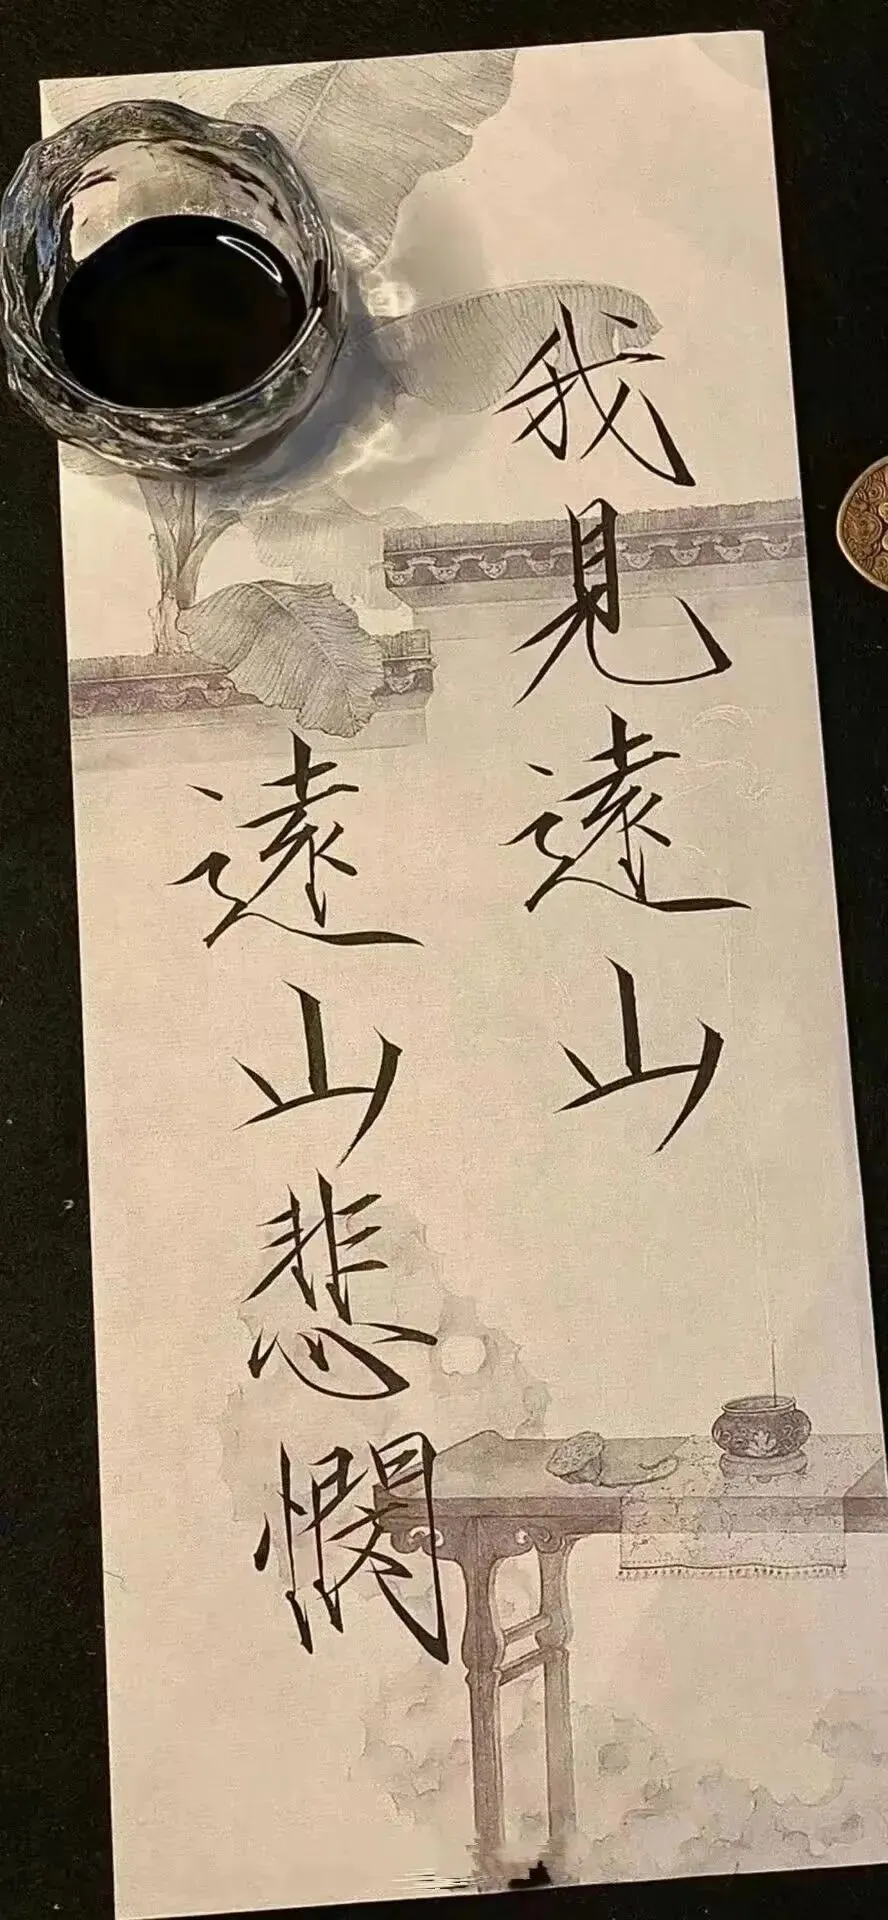 我見遠山
遠山悲憫